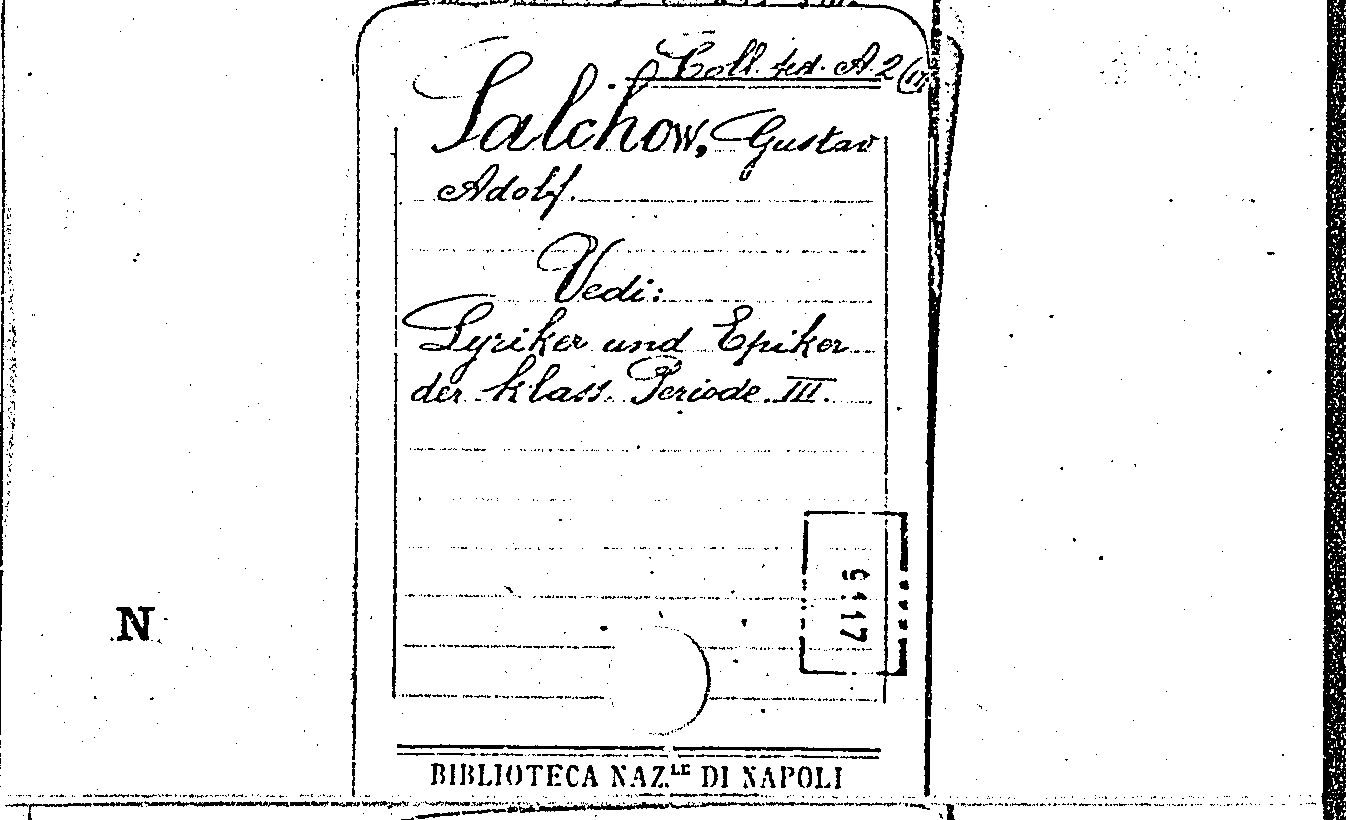 Coll. ted. A. 2 (17
Salchow, Gustav
Adolf.
Vedi:
Lyriker und Epiker
der klass. Periode III.
N
BIBLIOTECA NAZ.LE DI NAPOLI